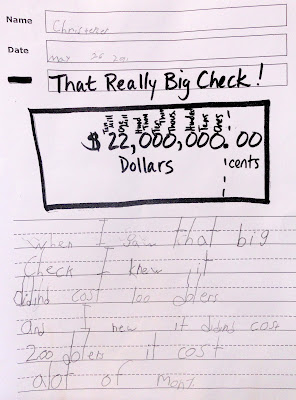 Name
Christopher
Date
May 26 201
That Really Big Check!
Ten Mill One Mill Hund Thou Ten Thou Thous. Hundred Tens Ones
$22,000,000.00
Dollars cents
When I saw that big
Check I knew it
didind cost 100 dolers
And I new it didind cost
200 dolers it cost
alot of mony.